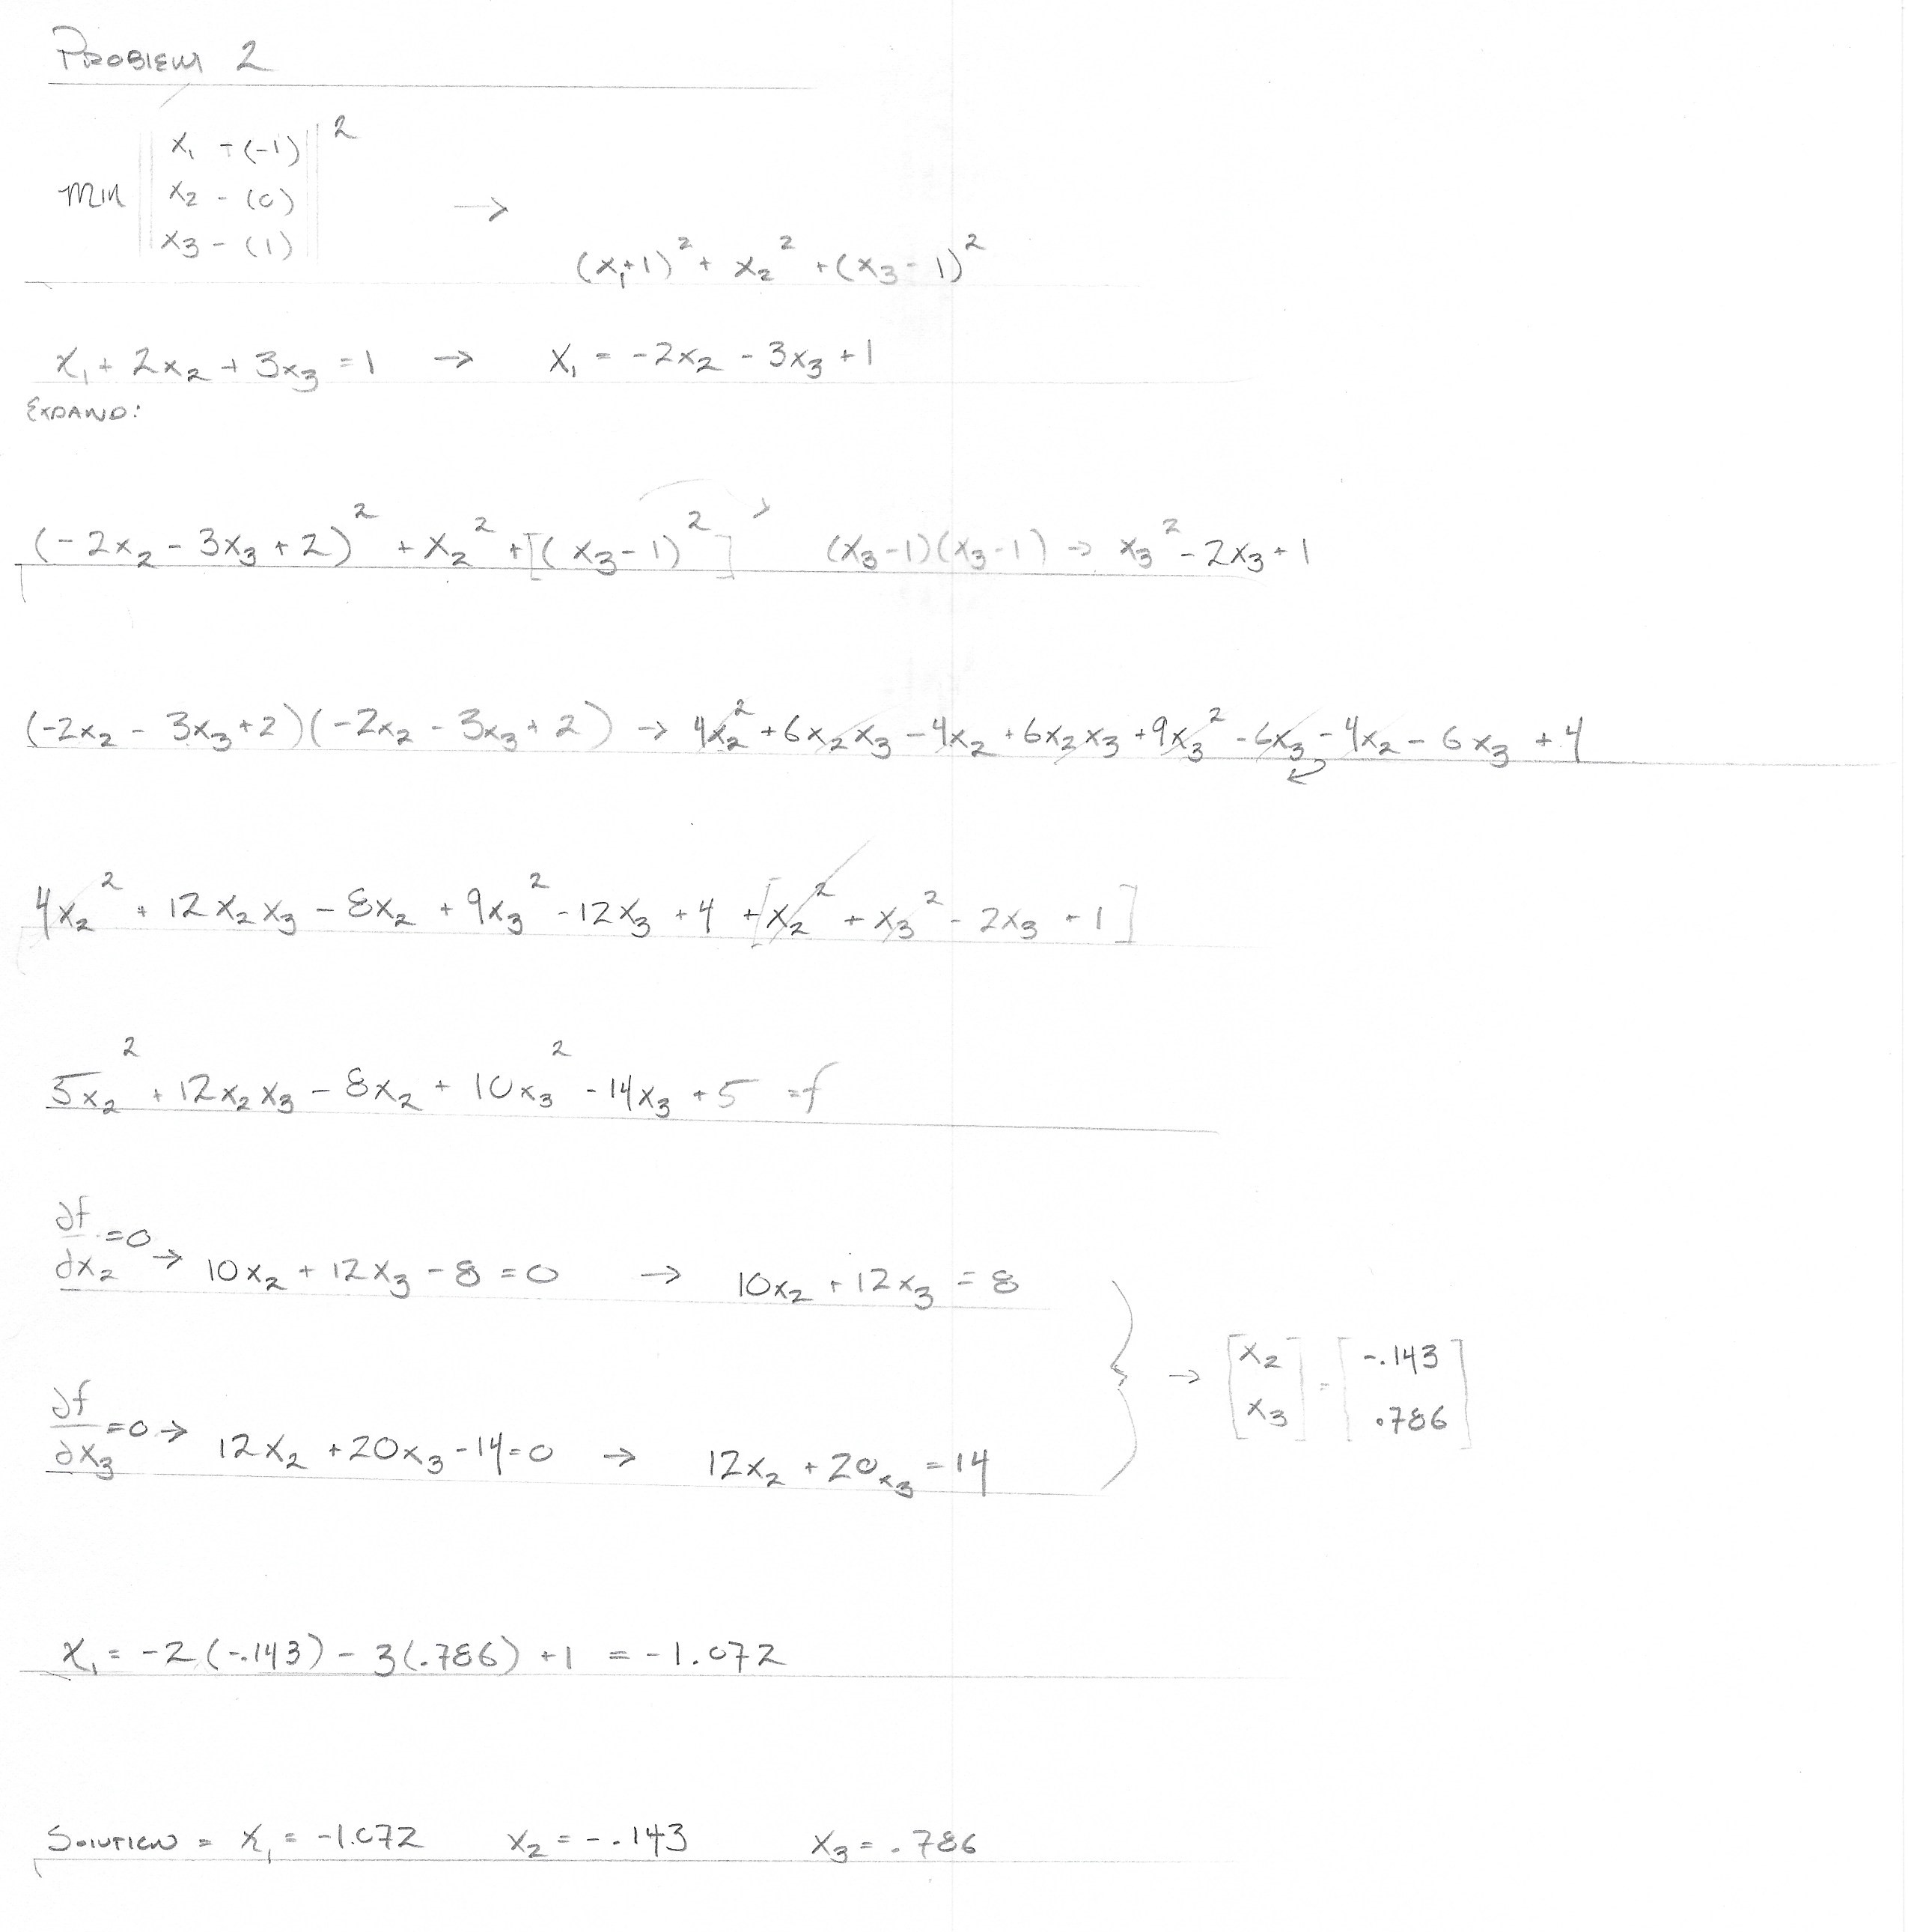 PROBLEM 2
MIN || x₁ - (-1) ||²
x₂ - (0)
x₃ - (1)
→ (x₁+1)² + x₂² + (x₃ - 1)²
x₁ + 2x₂ + 3x₃ = 1 → x₁ = -2x₂ - 3x₃ + 1
EXPAND:
(-2x₂ - 3x₃ + 2)² + x₂² + [(x₃ - 1)²] (x₃-1)(x₃-1) → x₃² - 2x₃ + 1
(-2x₂ - 3x₃ + 2)(-2x₂ - 3x₃ + 2) → 4x₂² + 6x₂x₃ - 4x₂ + 6x₂x₃ + 9x₃² - 6x₃ - 4x₂ - 6x₃ + 4
4x₂² + 12x₂x₃ - 8x₂ + 9x₃² - 12x₃ + 4 + [x₂² + x₃² - 2x₃ + 1]
5x₂² + 12x₂x₃ - 8x₂ + 10x₃² - 14x₃ + 5 = f
∂f/∂x₂ = 0 → 10x₂ + 12x₃ - 8 = 0 → 10x₂ + 12x₃ = 8
∂f/∂x₃ = 0 → 12x₂ + 20x₃ - 14 = 0 → 12x₂ + 20x₃ = 14
} → [x₂ x₃] = [-.143 .786]
x₁ = -2(-.143) - 3(.786) + 1 = -1.072
SOLUTION = x₁ = -1.072 x₂ = -.143 x₃ = .786